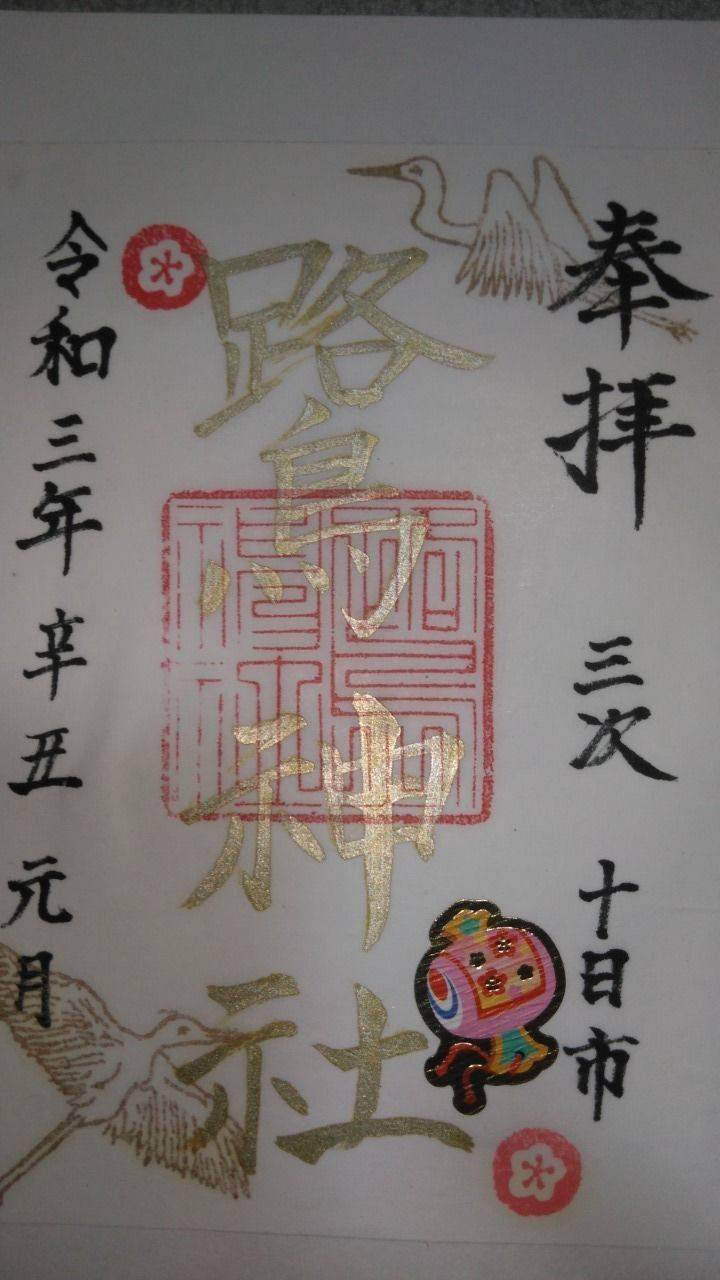 奉拝 三次 十日市
鷺神社
令和三年 辛丑 元月